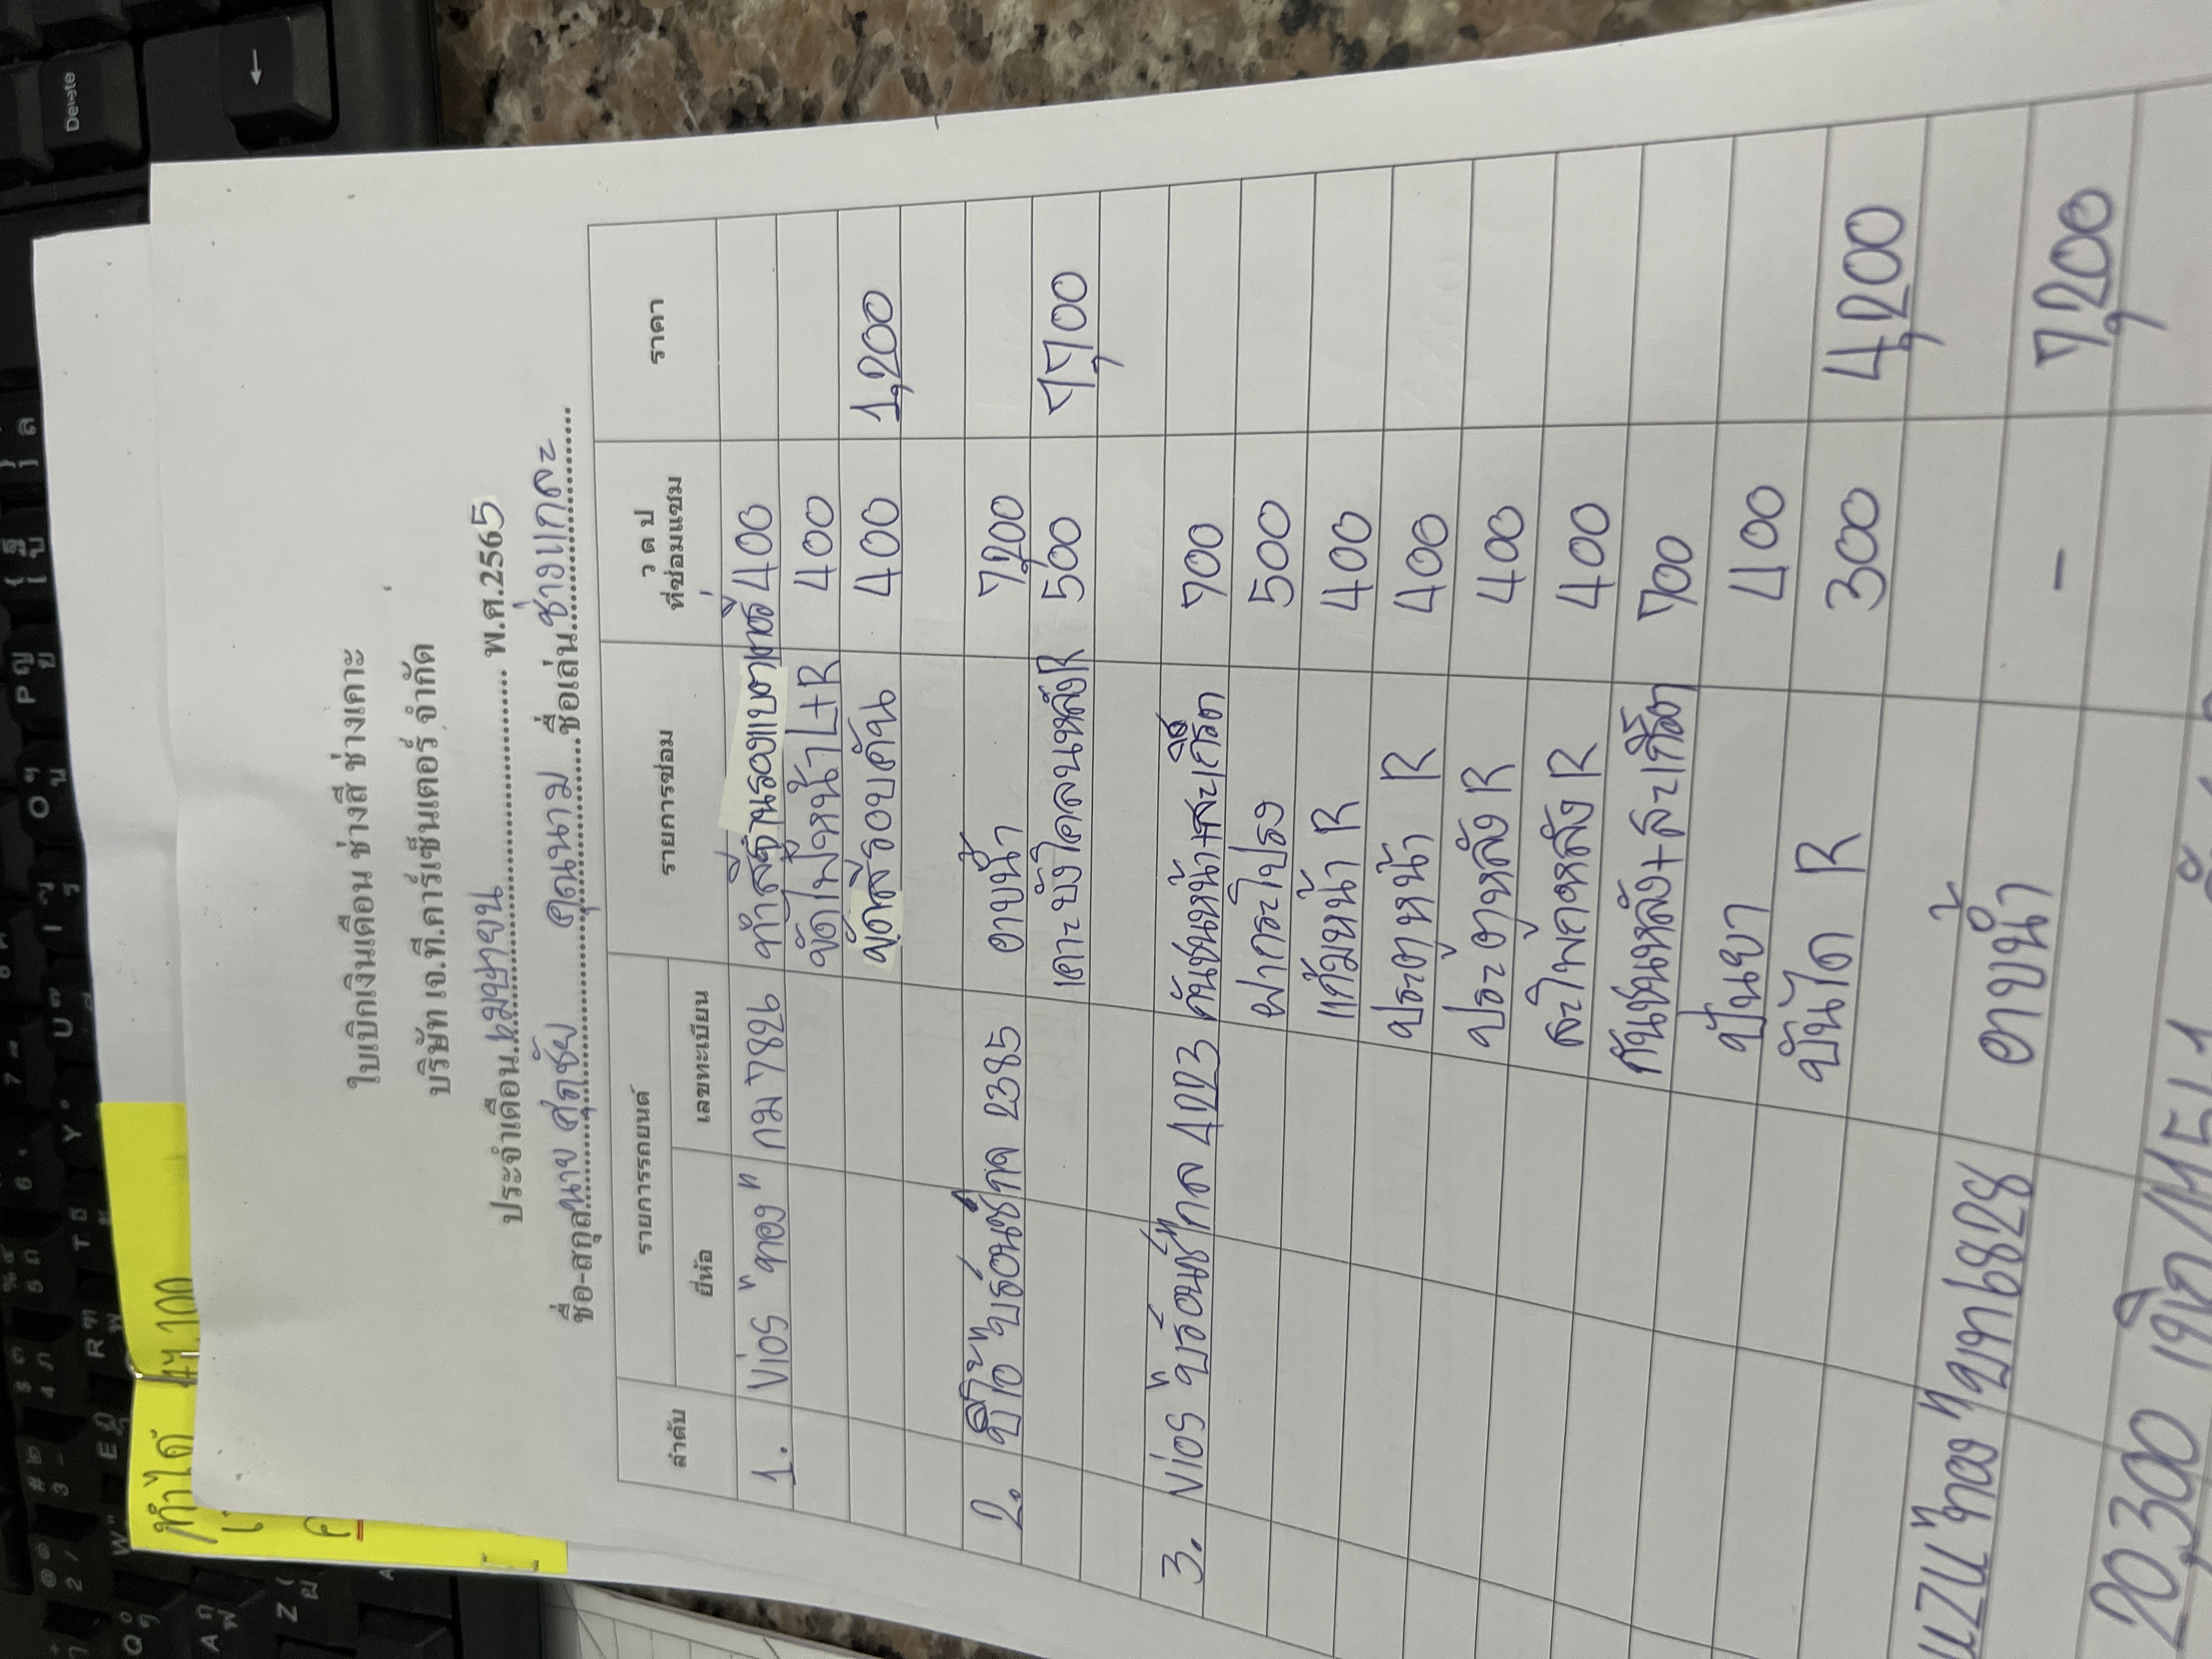 ใบเบิกเงินเดือน ช่างสี ช่างเคาะ
บริษัท เจ.ที.คาร์เซ็นเตอร์ จำกัด
ประจำเดือน เมษายน พ.ศ.2565
ชื่อ-สกุล นาย ศุภชัย คุณนาม ชื่อเล่น ช่างแกละ
ลำดับ รายการรถยนต์ รายการซ่อม ว ด ป ที่ซ่อมแซม ราคา
ยี่ห้อ เลขทะเบียน
1. Vios "ทอง" กม 7826 ทำสีฐานรองแบตเตอรี่ 400
ขัดไฟหน้า L+R 400
ขัดสีรอบคัน 400 1,200
2. บรอนซ์ กจ 2385 อาบน้ำ 7,200
เคาะบังโคลนหลัง R 500 7,700
3. Vios "บรอนซ์" กล 4223 กันชนหน้า+สเกิร์ต 700
ฝากระโปรง 500
แก้มหน้า R 400
ประตูหน้า R 400
ประตูหลัง R 400
สะโพกหลัง R 400
กันชนหลัง+สะเกิ้ต 700
ปันยา 400
บันได R 300 4,200
UZU "ทอง" บท6828 อาบน้ำ - 7,200
20,300 เบิก
ทำได้
Delete